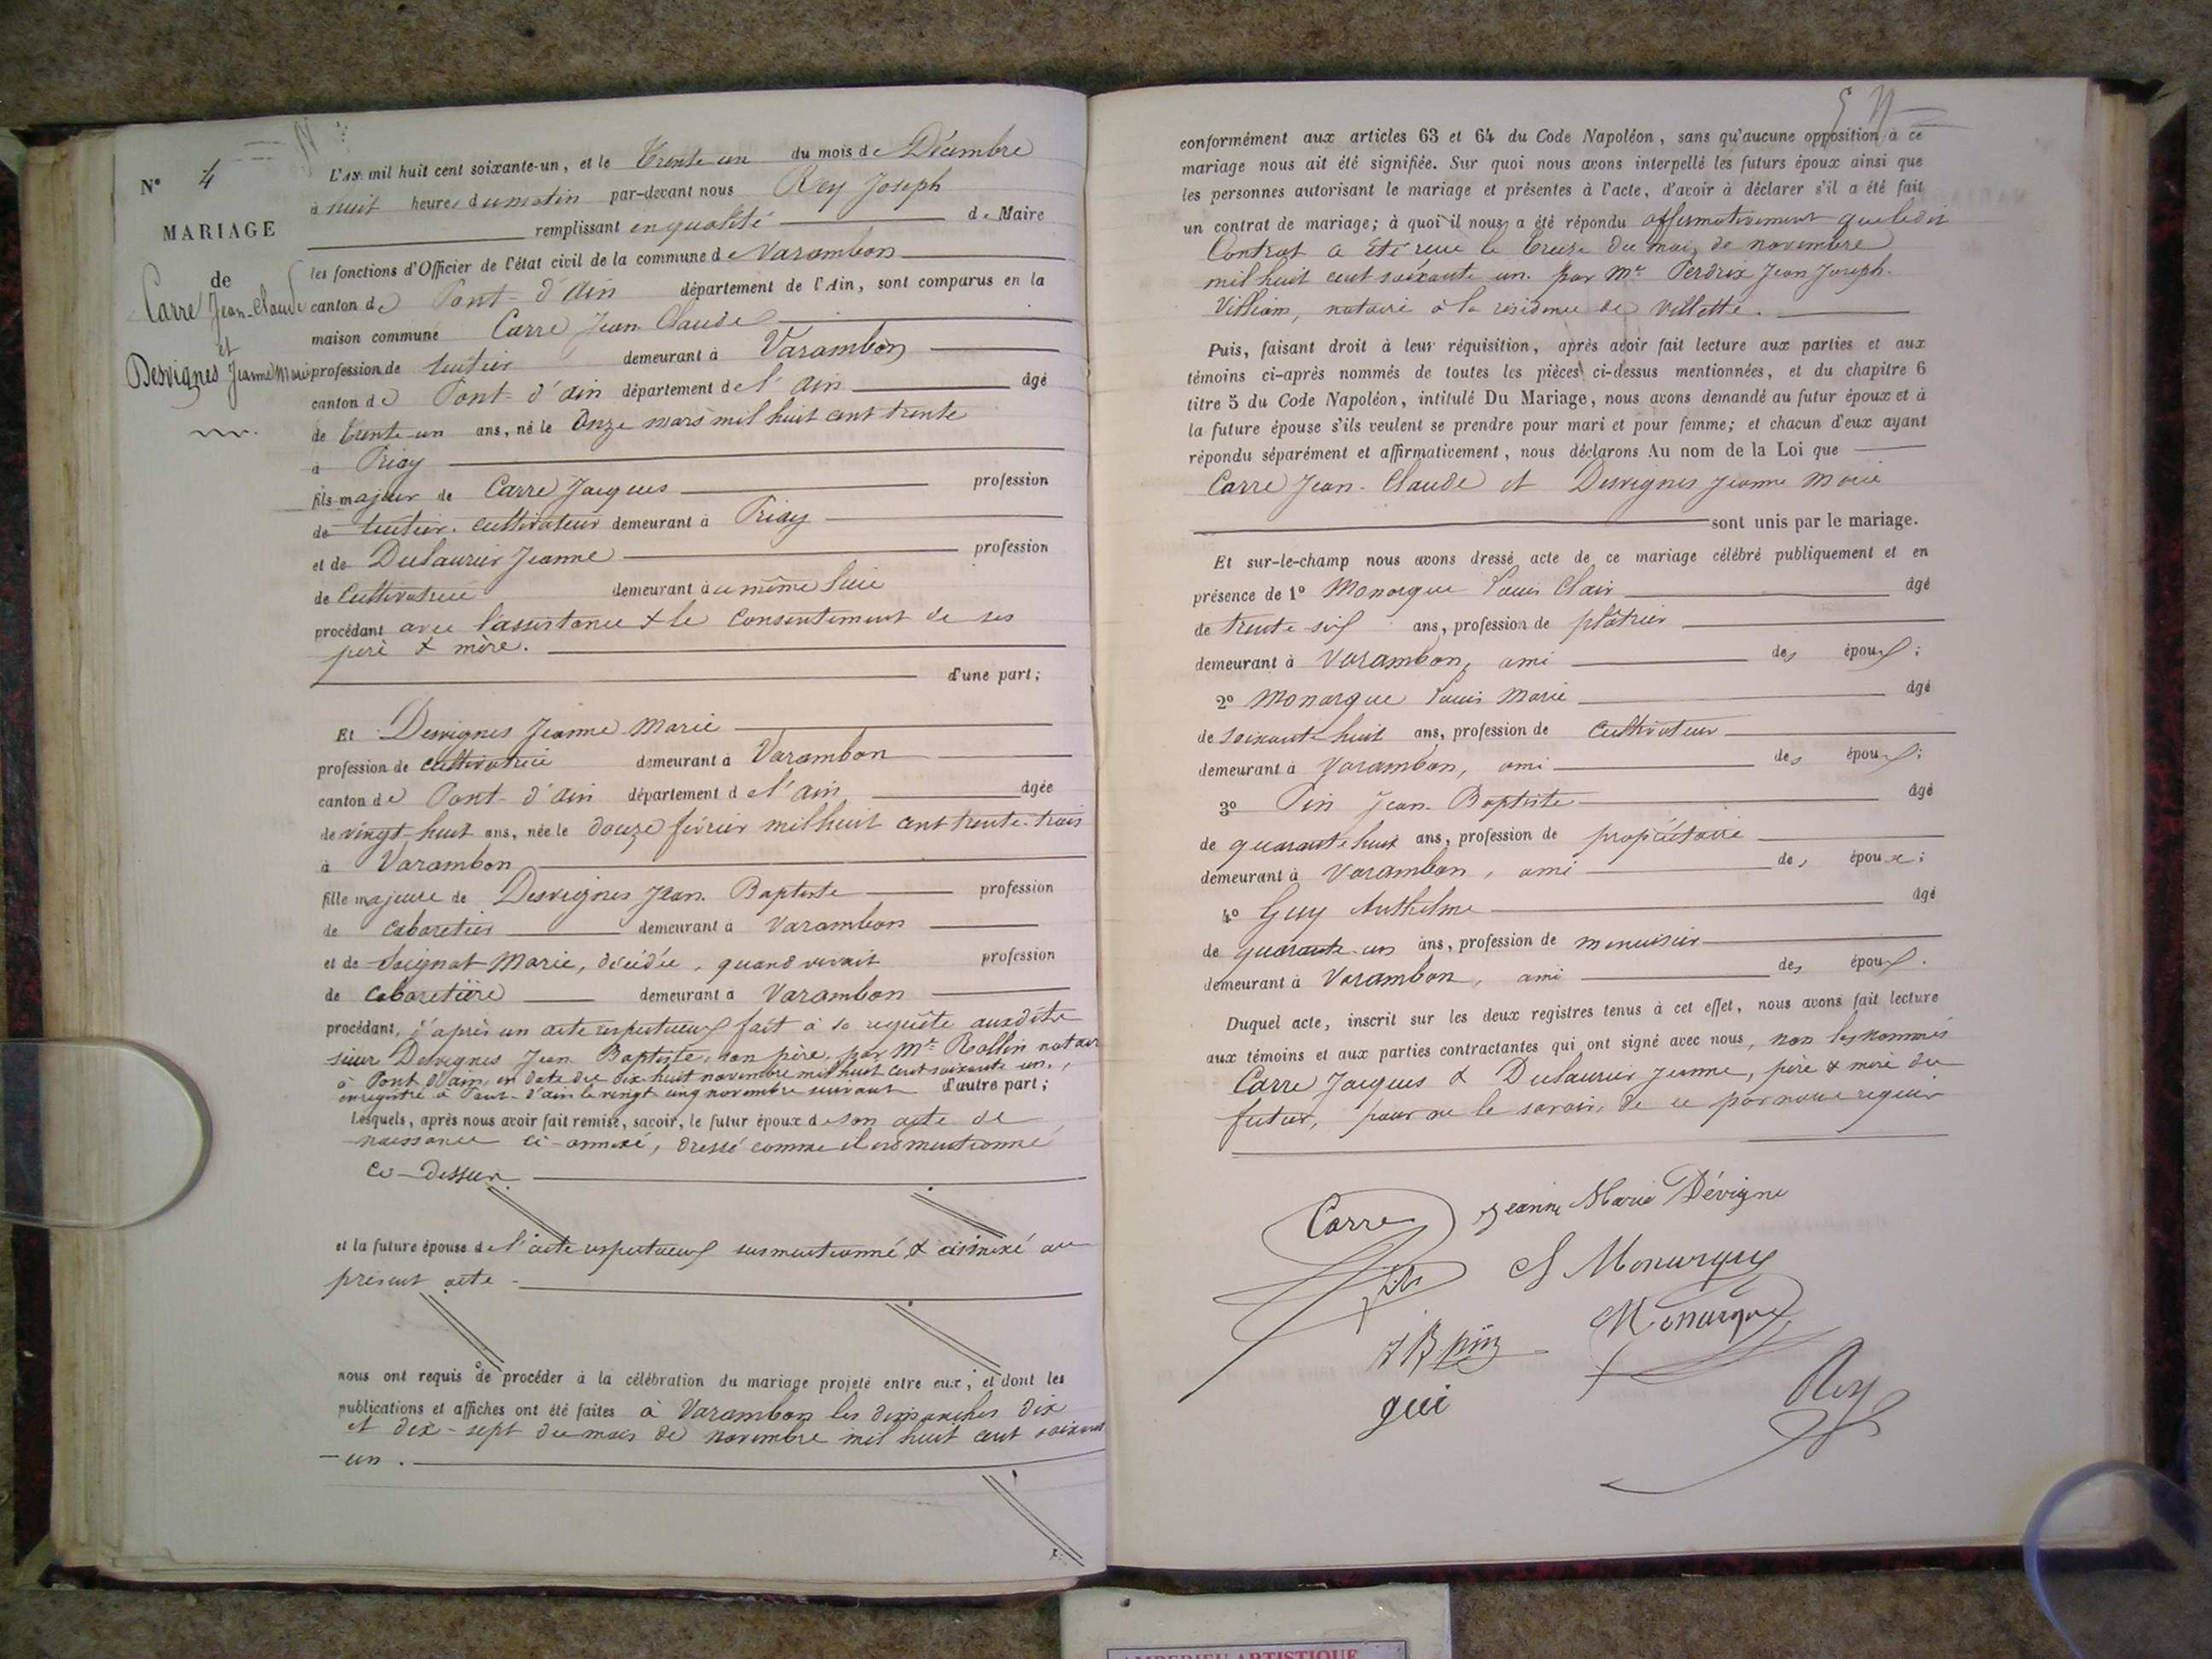 N° 4
MARIAGE
de
Carre Jean-Claude
et
Desvignes Jeanne Marie
L'an mil huit cent soixante-un, et le Trente un du mois de Décembre
à huit heures du matin par-devant nous Rey Joseph
remplissant en qualité de Maire
les fonctions d'Officier de l'état civil de la commune de Varambon
canton de Pont-d'ain département de l'Ain, sont comparus en la
maison commune Carre Jean Claude
profession de demeurant à Varambon
canton de Pont-d'ain département de l'ain âgé
de trente-un ans, né le onze mars mil huit cent trente
à Priay
fils majeur de Carre Jacques profession
de cultivateur demeurant à Priay
et de Dulaurier Jeanne profession
de Cultivatrice demeurant au même lieu
procédant avec l'assistance & le consentement de ses
père & mère.
d'une part;
Et Desvignes Jeanne Marie
profession de cultivatrice demeurant à Varambon
canton de Pont-d'ain département de l'ain âgée
de vingt-huit ans, née le douze février mil huit cent trente-trois
à Varambon
fille majeure de Desvignes Jean-Baptiste profession
de cabaretier demeurant à Varambon
et de Soignat Marie, décédée, quand vivait profession
de cabaretière demeurant à Varambon
procédant, d'après un acte respectueux fait à sa requête audit
sieur Desvignes Jean Baptiste, son père, par Me Rollin notaire
à Pont d'ain, en date du dix huit novembre mil huit cent soixante un,
enregistré à Pont-d'ain le vingt cinq novembre suivant d'autre part;
Lesquels, après nous avoir fait remise, savoir, le futur époux de son acte de
naissance ci-annexé, dressé comme il est mentionné
ci-dessus
et la future épouse de l'acte respectueux susmentionné & annexé au
présent acte
nous ont requis de procéder à la célébration du mariage projeté entre eux, et dont les
publications et affiches ont été faites à Varambon les dimanches dix
et dix-sept du mois de novembre mil huit cent soixante
-un.
conformément aux articles 63 et 64 du Code Napoléon, sans qu'aucune opposition à ce
mariage nous ait été signifiée. Sur quoi nous avons interpellé les futurs époux ainsi que
les personnes autorisant le mariage et présentes à l'acte, d'avoir à déclarer s'il a été fait
un contrat de mariage; à quoi il nous a été répondu affirmativement que ledit
Contrat a été reçu le treize du mois de novembre
mil huit cent soixante un. par Me Perdrix Jean Joseph
notaire à la résidence de Villette.
Puis, faisant droit à leur réquisition, après avoir fait lecture aux parties et aux
témoins ci-après nommés de toutes les pièces ci-dessus mentionnées, et du chapitre 6
titre 5 du Code Napoléon, intitulé Du Mariage, nous avons demandé au futur époux et à
la future épouse s'ils veulent se prendre pour mari et pour femme; et chacun d'eux ayant
répondu séparément et affirmativement, nous déclarons Au nom de la Loi que
Carre Jean-Claude et Desvignes Jeanne Marie
sont unis par le mariage.
Et sur-le-champ nous avons dressé acte de ce mariage célébré publiquement et en
présence de 1° Monarque Louis Clair âgé
de trente six ans, profession de plâtrier
demeurant à Varambon, ami des époux;
2° Monarque Louis Marie âgé
de soixante-huit ans, profession de cultivateur
demeurant à Varambon, ami des époux;
3° Pin Jean-Baptiste âgé
de quarante huit ans, profession de propriétaire
demeurant à Varambon, ami des époux;
4° Guy Anthelme âgé
de quarante-un ans, profession de menuisier
demeurant à Varambon, ami des époux.
Duquel acte, inscrit sur les deux registres tenus à cet effet, nous avons fait lecture
aux témoins et aux parties contractantes qui ont signé avec nous, non les nommés
Carre Jacques & Dulaurier Jeanne, père & mère du
futur, pour ne le savoir, de ce par nous requis
Carre Jeanne Marie Dévigne
fils Monarque
JB pin Monarque
gui Rey
AMBERIEU ARTISTIQUE